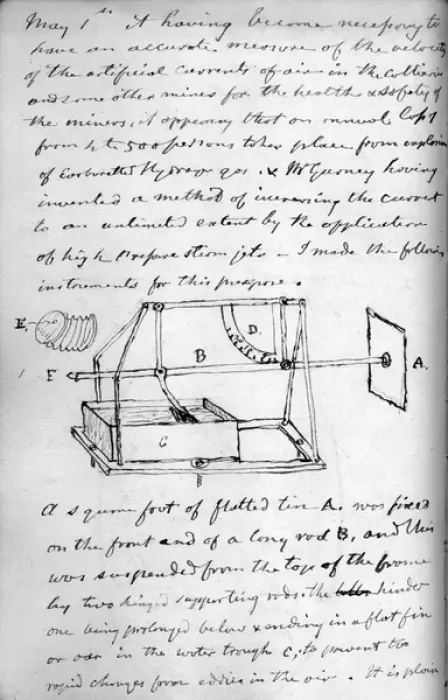 May 1st It having become necessary to
have an accurate measure of the velocity
of the artificial currents of air in the Collieries
and some other mines for the health & safety of
the miners, it appearing that an annual loss
from 4 to 500 persons takes place from explosion
of Carburetted Hydrogen gas. & Mr Gurney having
invented a method of increasing the current
to an unlimited extent by the application
of high pressure steam jets - I made the following
instruments for this purpose.
E.
D.
B
A.
F
C
A square foot of flatted tin A. was fixed
on the front end of a long rod B, and this
was suspended from the top of the frame
by two hinged supporting rods, the hinder
one being prolonged below & ending in a flat fin
or oar in the water trough C, to prevent too
rapid changes from eddies in the air. It is plain